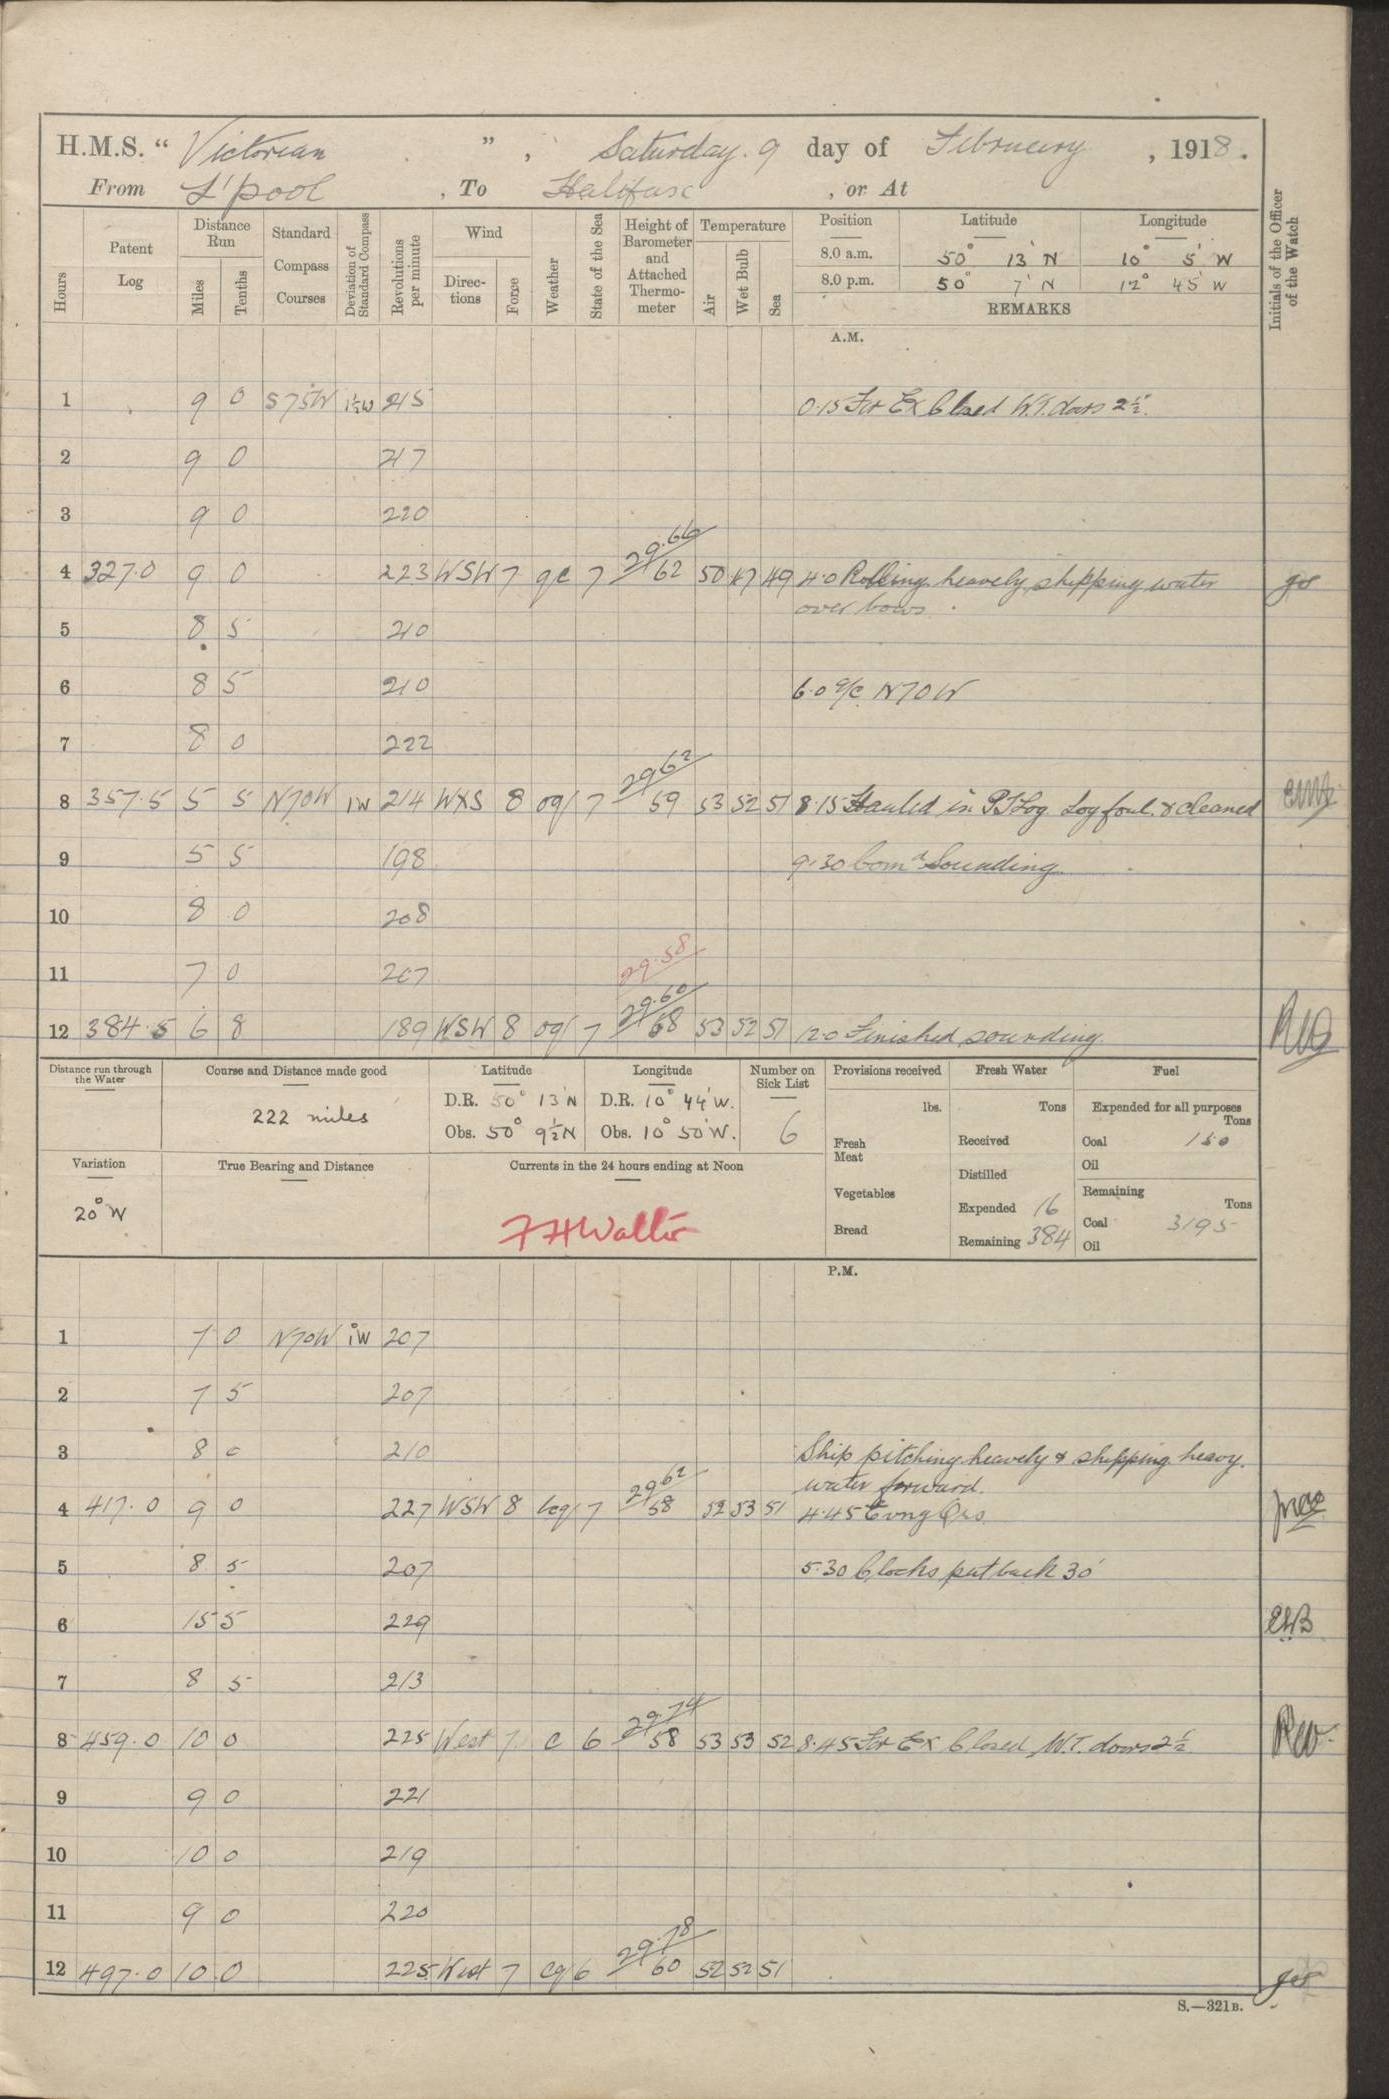 H.M.S. " Victorian ", Saturday. 9 day of February, 1918.
From L'pool, To Halifax, or At
Hours Patent Log Distance Run Miles Tenths Standard Compass Courses Deviation of Standard Compass Revolutions per minute Wind Directions Force Weather State of the Sea Height of Barometer and Attached Thermometer Temperature Air Wet Bulb Sea Position Latitude Longitude Initials of the Officer of the Watch
8.0 a.m. 50° 13' N 10° 5' W
8.0 p.m. 50° 7' N 12° 45' W
REMARKS
A.M.
1 9 0 S75W 1½W 215 0.15 Fr Ex Closed W.T. doors 2½"
2 9 0 217
3 9 0 220
29.66
4 327.0 9 0 223 WSW 7 qc 7 62 50 47 49 4.0 Rolling heavely shipping water
over bows.
5 8 5 210
6 8 5 210 6.0 a/c N70W
7 8 0 222
29.62
8 357.5 5 5 N70W 1W 214 WXS 8 oq 7 59 53 52 51 8.15 Hauled in PTLog Log foul & cleaned
9 5 5 198 9.30 Comd Sounding
10 8 0 208
29.58
11 7 0 207
29.60
12 384.5 6 8 189 WSW 8 oq 7 58 53 52 51 12.0 Finished sounding
Distance run through the Water Course and Distance made good Latitude Longitude Number on Sick List Provisions received Fresh Water Fuel
222 miles
D.R. 50° 13' N D.R. 10° 44' W.
Obs. 50° 9½ N Obs. 10° 50' W. 6
lbs. Tons Expended for all purposes Tons
Fresh Meat Received Coal 150
Distilled Oil
Variation True Bearing and Distance Currents in the 24 hours ending at Noon
20° W
Vegetables Expended 16 Remaining Tons
Coal 3195
Bread Remaining 384 Oil
F H Walter
P.M.
1 7 0 N70W 1W 207
2 7 5 207
3 8 0 210 Ship pitching heavely & shipping heavy
water forward.
29.62
4 417.0 9 0 227 WSW 8 bcq 7 58 52 53 51 4.45 Evng Qrs
5 8 5 207 5.30 Clocks put back 30'
6 15 5 229 EHB
7 8 5 213
29.74
8 459.0 10 0 225 West 7 c 6 58 53 53 52 8.45 Fr Ex Closed W.T. doors 2½
9 9 0 221
10 10 0 219
11 9 0 220
29.78
12 497.0 10 0 225 West 7 cq 6 60 52 52 51
S.—321B.